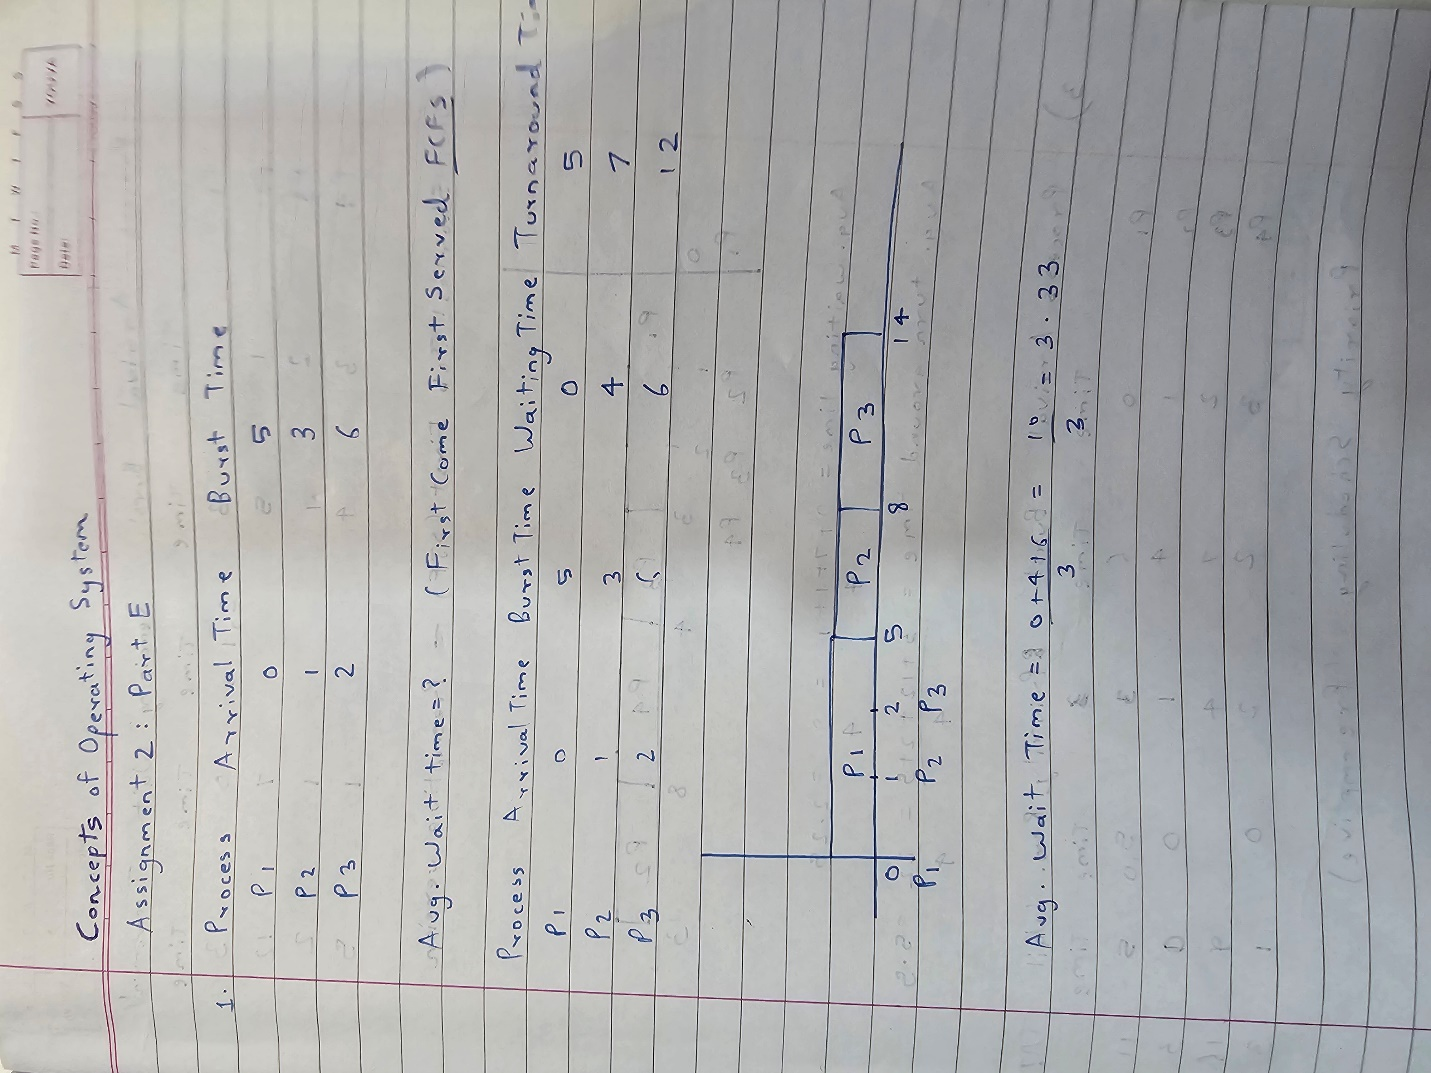 Page No.:
Date:
Concepts of Operating System
Assignment 2 : Part E
1. Process Arrival Time Burst Time
P1 0 5
P2 1 3
P3 2 6
Avg. Wait time = ? - (First Come First Served FCFS)
Process Arrival Time Burst Time Waiting Time Turnaround
P1 0 5 0 5
P2 1 3 4 7
P3 2 6 12
P1 P2 P3
0 1 2 5 8 14
P1 P2 P3
Avg. Wait Time = 0+4+6 = 10 = 3.33
3 3